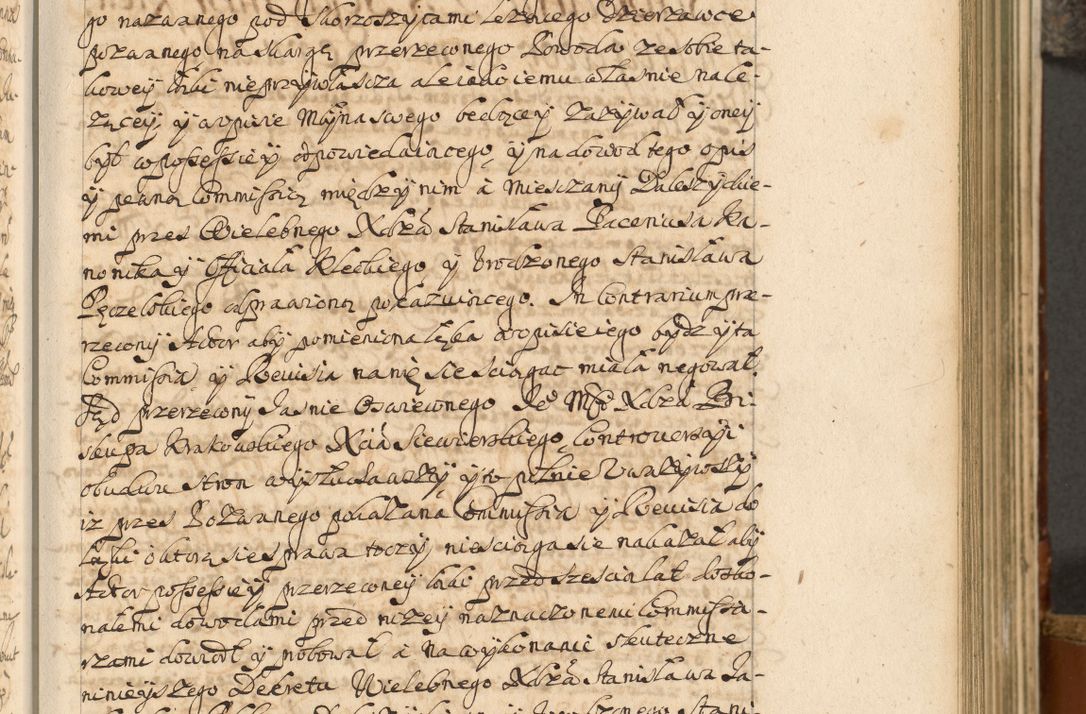 go nazwanego pod Skorzoszycami lezącego Dzierzawce
pozwanego na skargę przerzeconego Powoda ze sobie ta-
kowey łąki nieprzywłaszcza ale iako iemu własnie nale-
zącey y w opisie Młyna swego będącey zazywał y oney
był w possessiey odpowiedaiącego, y na dowod tego opis
y pewną Commissią między nim a Mieszczany Daleszyckie-
mi przes Wielebnego Xdza Stanisława Paceniusa Ka-
nonika y Officiała Kleckiego y Urodzonego Stanisława
Pęczelskiego wsprawioną pokazuiącego. In contrarium prze-
rzeczony Actor aby pomieniona łąka w opisie iego bydz y ta
Commissia y Rewisia na nię sie sciągac miała negował.
Sąd przerzeczony Jasnie Oswieconego Je° Mści Xdza Bi-
skupa Krakowskiego Xcia Siewierskiego Controversyi
obudwu stron wysłuchawszy y to pilnie uwazywszy
iz przes Pozwanego pokazana Commissia y Rewisia do
łąki o ktorą sie sprawa toczy, niesciąga sie nakazał aby
Actor possessiey przerzeconey łąki przed szescią lat dosko-
nałemi dowodami przed nizey naznaczonemi Commissa-
rzami dowiodł y probował a na wykonanie skuteczne
ninieyszego Dekretu Wielebnego Xdza Stanisława Ja-